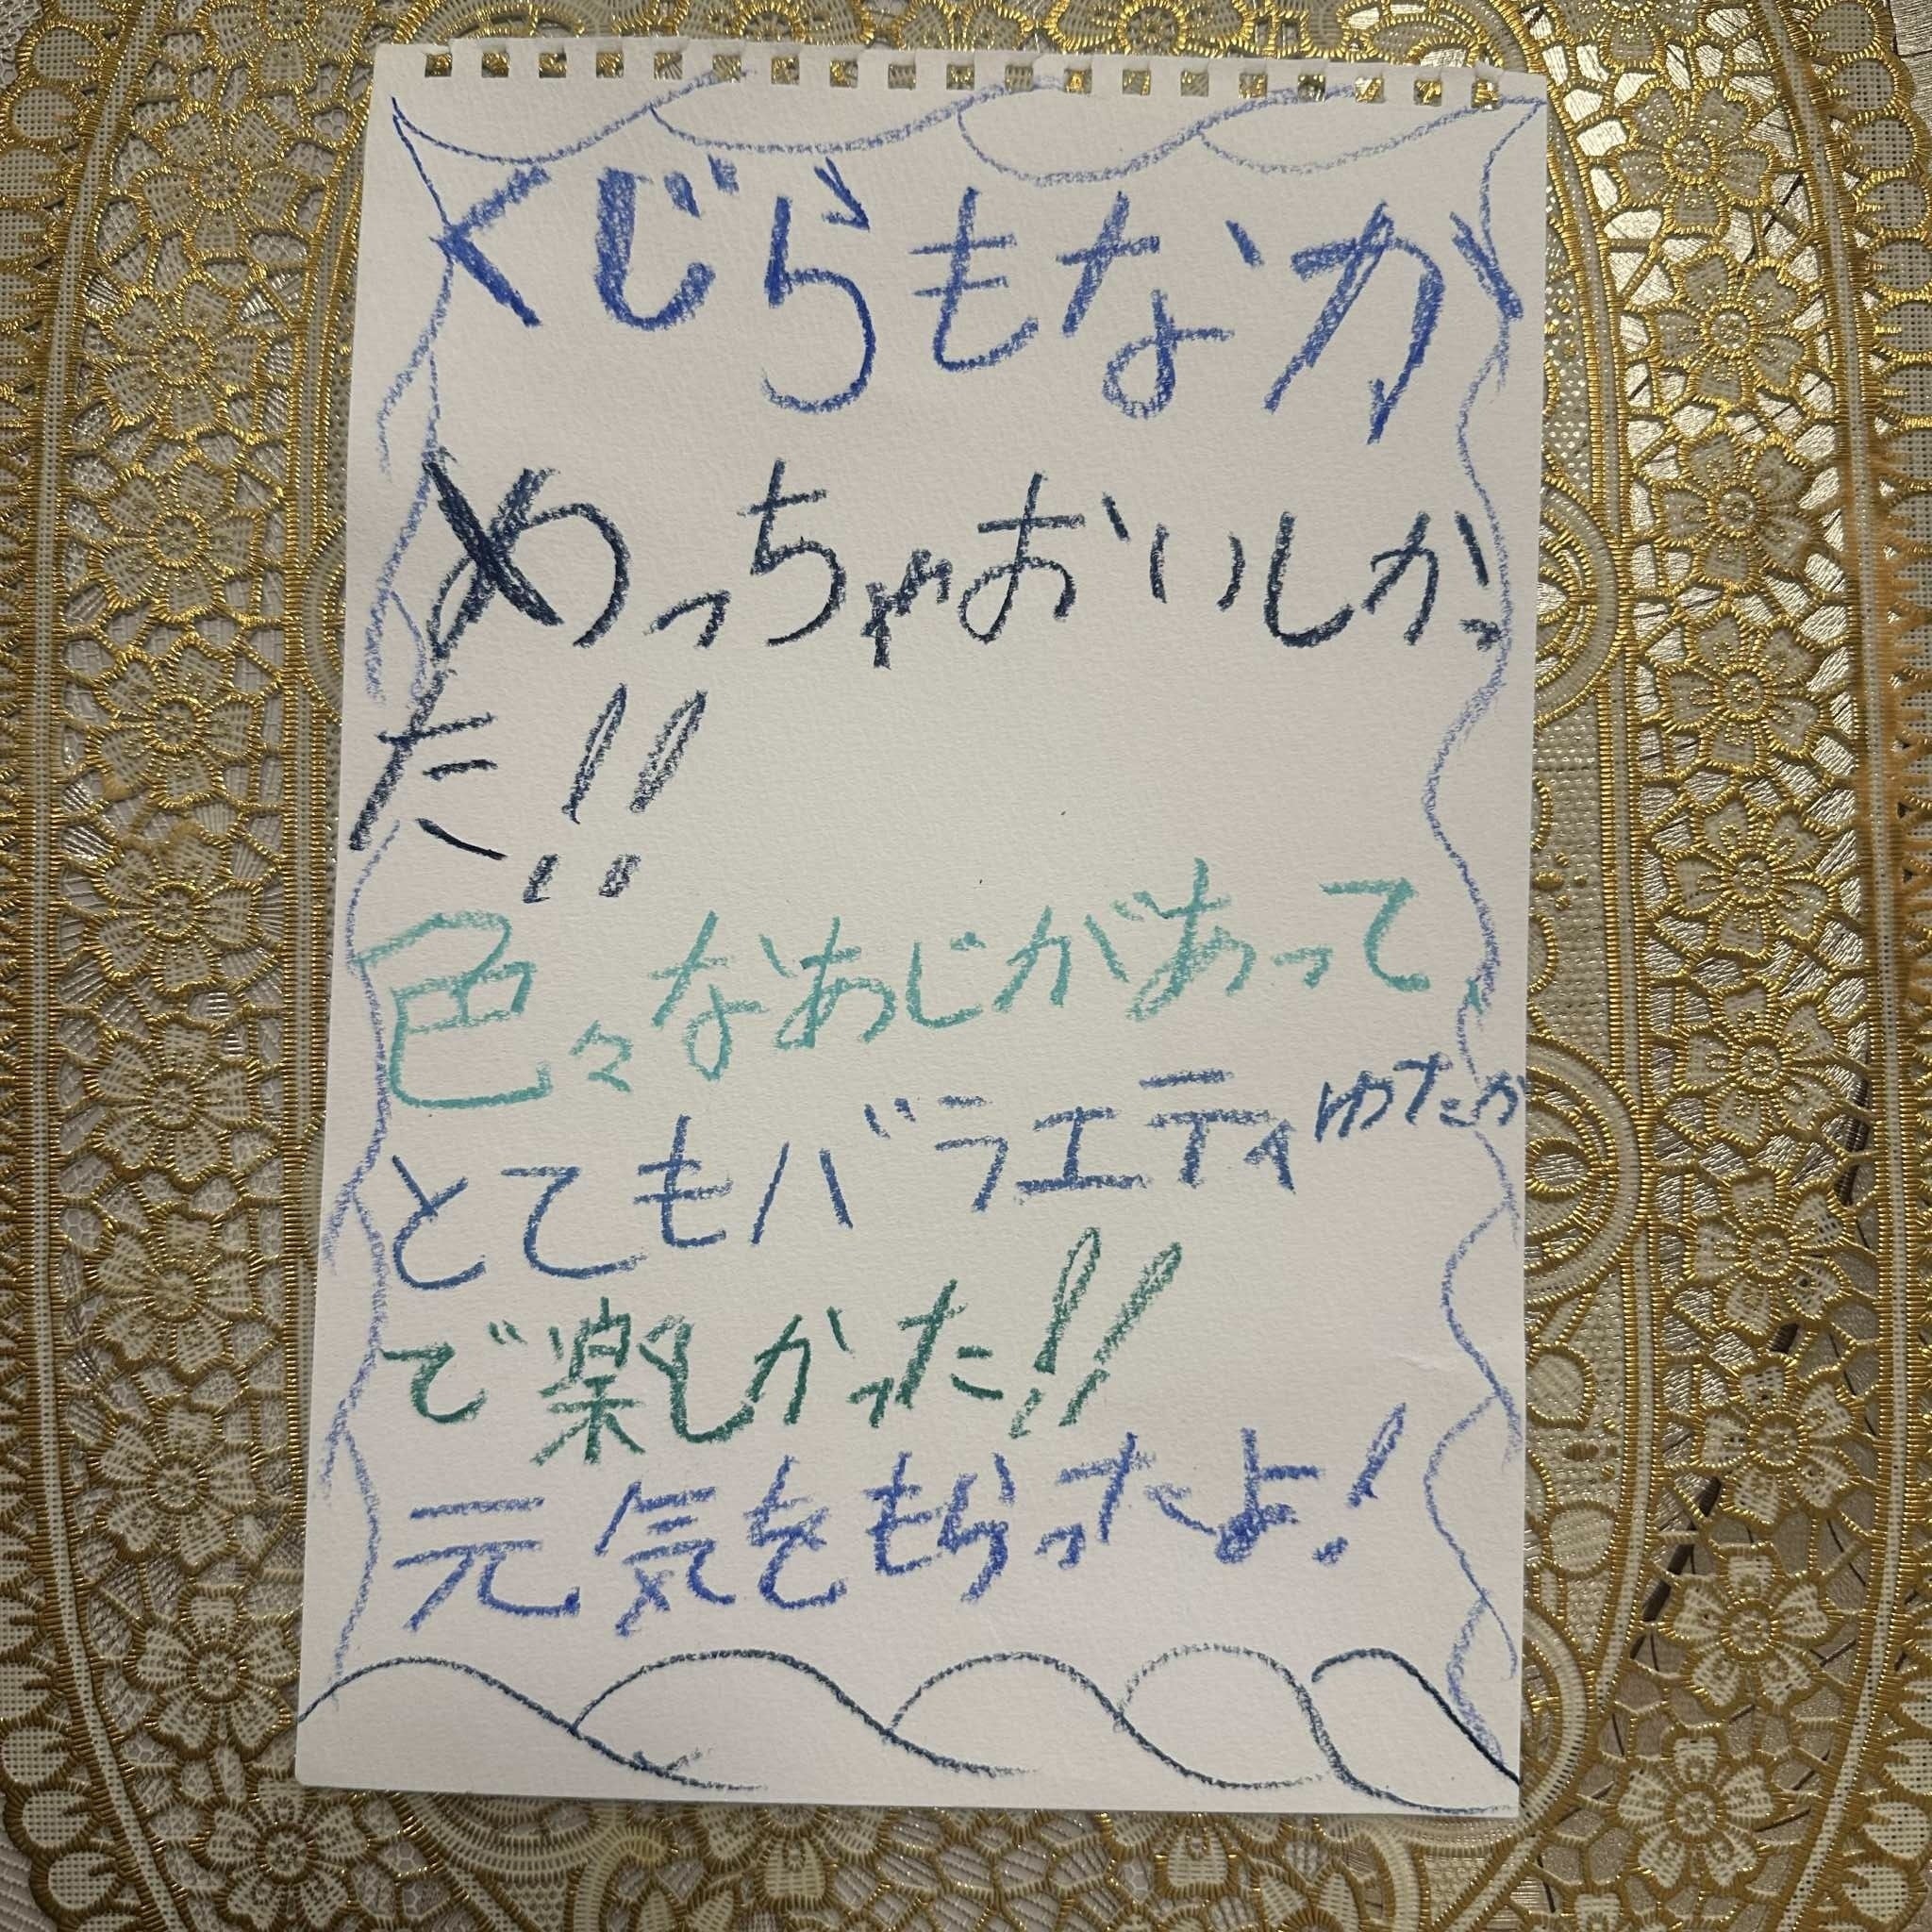 くじらもなか
めっちゃおいしかっ
た!!
色々なあじがあって
とてもバラエティゆたか
で楽しかった!!
元気をもらったよ!